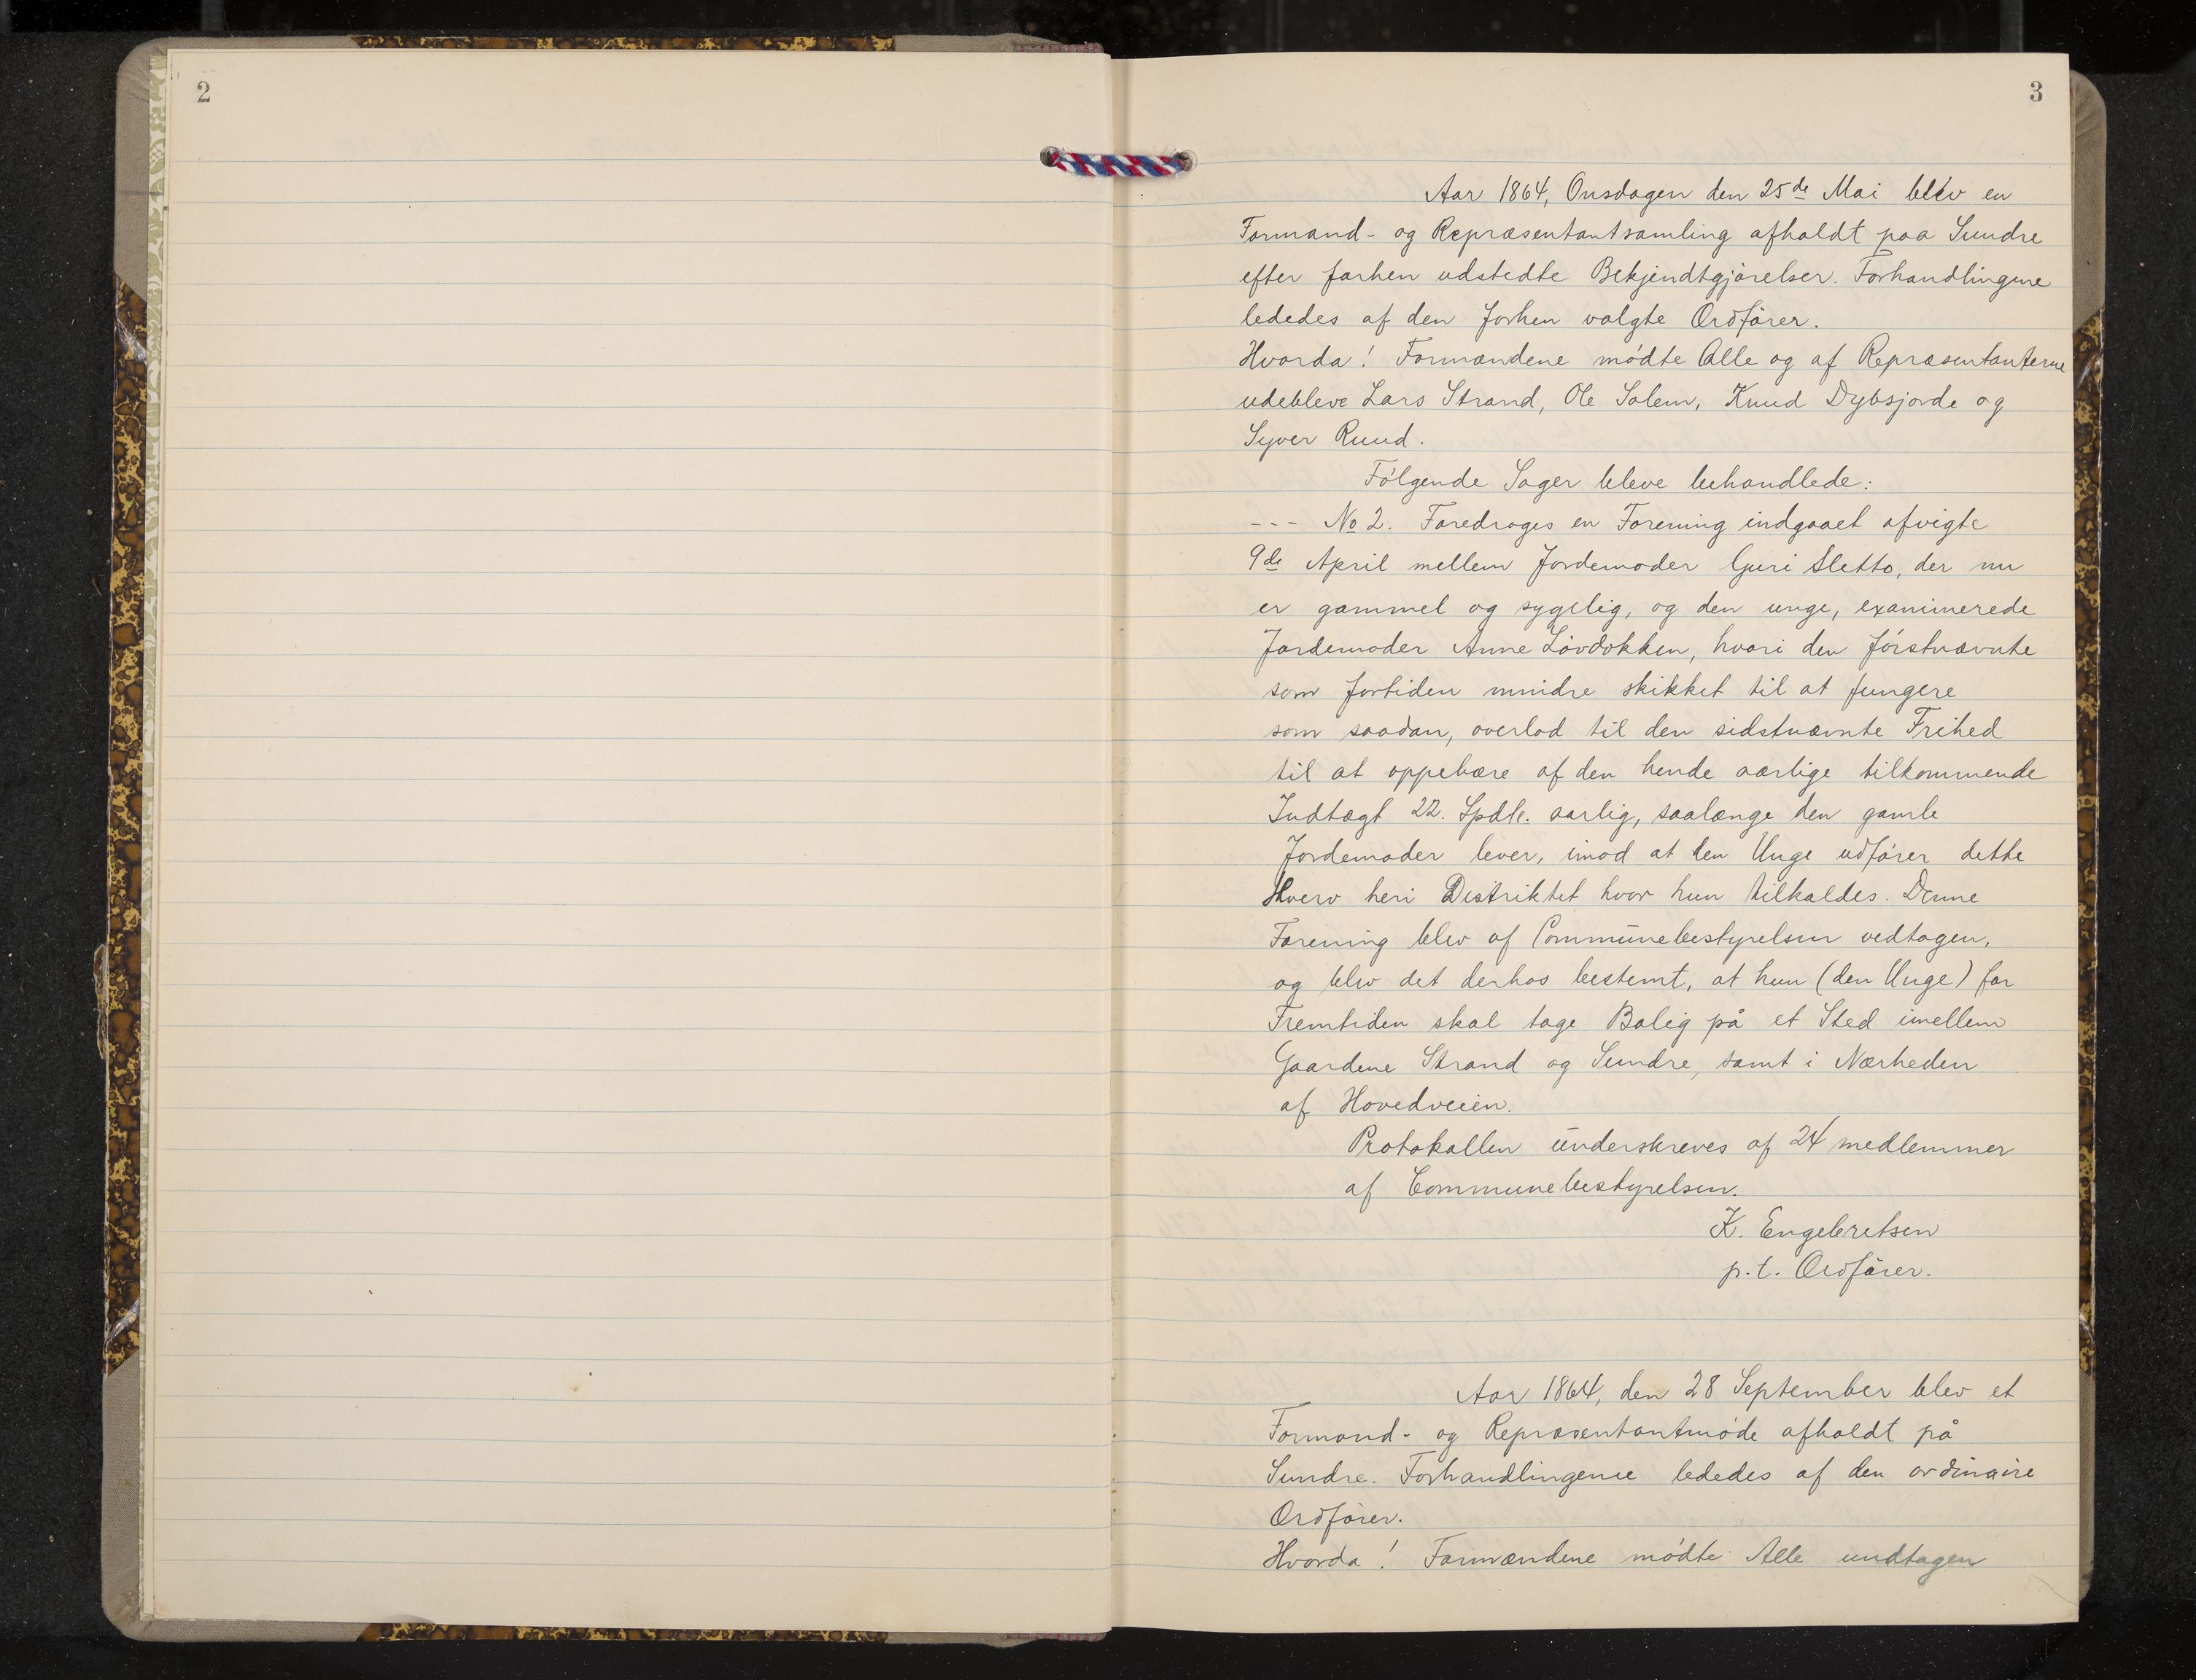 2
3
Aar 1864, Onsdagen den 25de Mai blev en
Formand- og Repræsentantsamling afholdt paa Sundre
efter forhen udstedte Bekjendtgjørelser. Forhandlingene
lededes af den forhen valgte Ordfører.
Hvorda! Formændene mødte Alle og af Repræsentanterne
udebleve Lars Strand, Ole Solem, Knud Dybsjorde og
Syver Ruud.
Følgende Sager bleve behandlede:
--- No 2. Foredroges en Forening indgaaet afvigte
9de April mellem Jordemoder Guri Sletto, der nu
er gammel og sygelig, og den unge, examinerede
Jordemoder Anne Løvdokken, hvori den førstnævnte
som fortiden mindre skikket til at fungere
som saadan, overlod til den sidstnævnte Frihed
til at oppebære af den hende aarlige tilkommende
Indtægt 22. Spdlr. aarlig, saalænge den gamle
Jordemoder lever, imod at den Unge udfører dette
Hverv heri Distriktet hvor hun tilkaldes. Denne
Forening blev af Communebestyrelsen vedtagen,
og blev det derhos bestemt, at hun (den Unge) for
Fremtiden skal tage Bolig på et Sted imellem
Gaardene Strand og Sundre, samt i Nærheden
af Hovedveien.
Protokollen underskreves af 24 medlemmer
af Communebestyrelsen.
K. Engebretsen
p.t. Ordfører.
Aar 1864, den 28 September blev et
Formand- og Repræsentantmøde afholdt på
Sundre. Forhandlingene lededes af den ordinaire
Ordfører.
Hvorda! Formændene mødte Alle undtagen